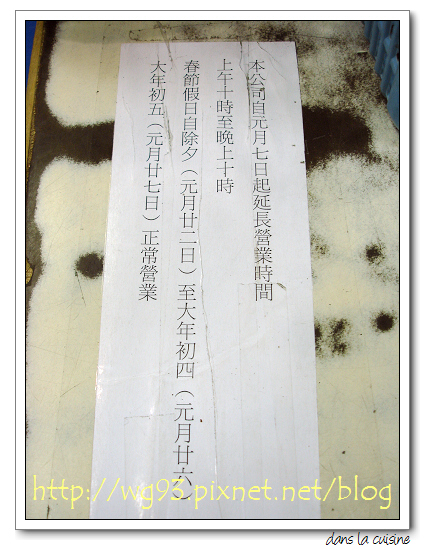 本公司自元月七日起延長營業時間
上午十時至晚上十時
春節假日自除夕（元月廿二日）至大年初四（元月廿六）
大年初五（元月廿七日）正常營業
http://wg93.pixnet.net/blog
dans la cuisine